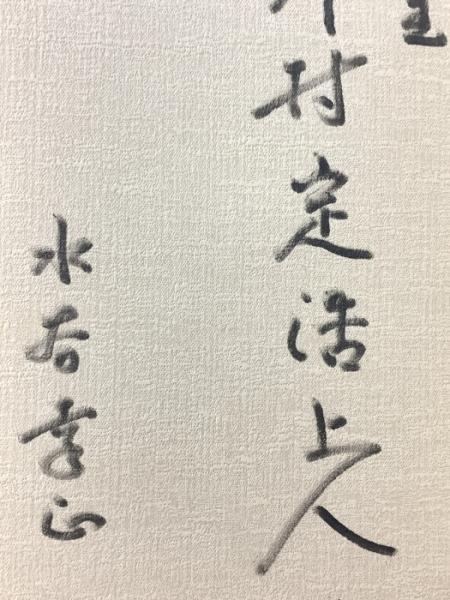 村定浩上人
水谷幸正